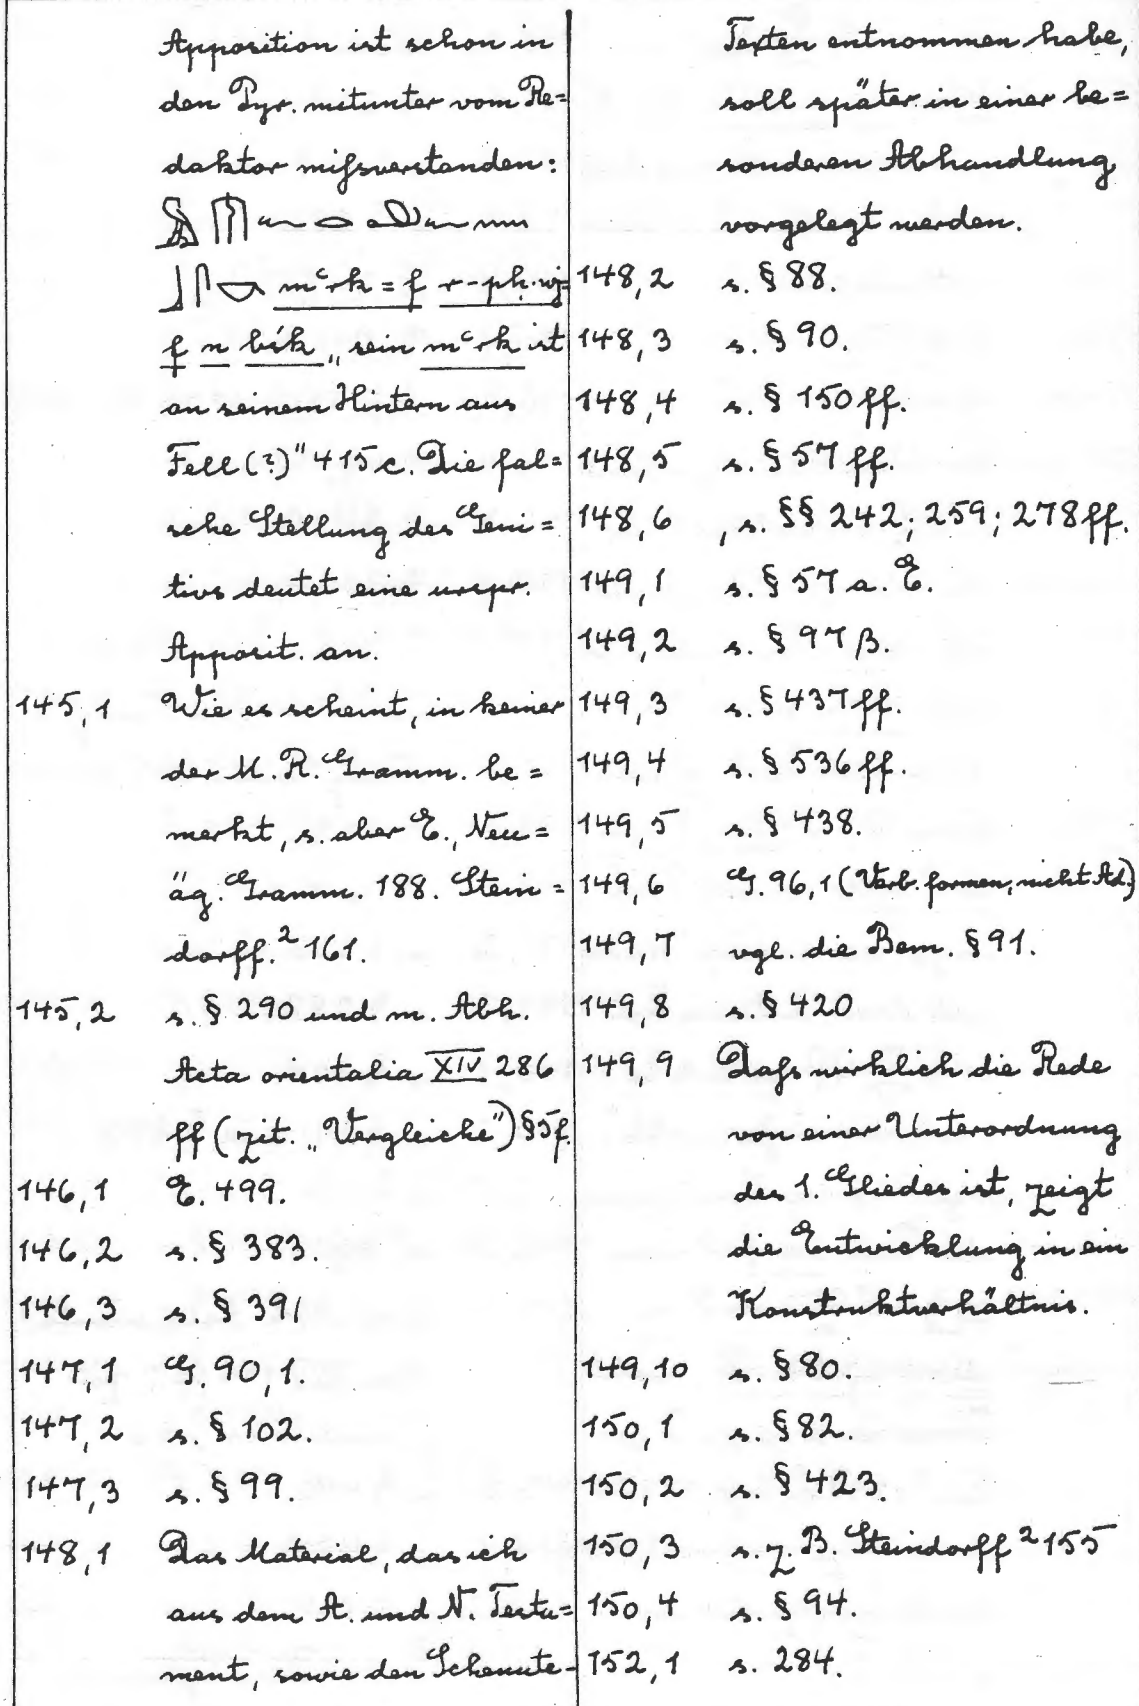 Apposition ist schon in
den Pyr. mitunter vom Re=
daktor mißverstanden:
mꜥrk=f r-pḥ.wj=
f n bśk „sein mꜥrk ist
an seinem Hintern aus
Fell(?)" 415c. Die fal=
sche Stellung des Geni=
tivs deutet eine urspr.
Apposit. an.
145,1 Wie es scheint, in keiner
der M.R. Gramm. be=
merkt, s. aber E., Neu=
äg. Gramm. 188. Stein=
dorff.² 161.
145,2 s. § 290 und m. Abh.
Acta orientalia XIV 286
ff (zit. „Vergleiche") §5f.
146,1 E. 499.
146,2 s. § 383.
146,3 s. § 391
147,1 G. 90,1.
147,2 s. § 102.
147,3 s. § 99.
148,1 Das Material, das ich
aus dem A. und N. Testa=
ment, sowie den Schenute-
Texten entnommen habe,
soll später in einer be=
sonderen Abhandlung
vorgelegt werden.
148,2 s. § 88.
148,3 s. § 90.
148,4 s. § 150 ff.
148,5 s. § 57 ff.
148,6 , s. §§ 242; 259; 278 ff.
149,1 s. § 57 a. E.
149,2 s. § 97 β.
149,3 s. § 437 ff.
149,4 s. § 536 ff.
149,5 s. § 438.
149,6 G. 96,1 (Verb. formen, nicht Ad.)
149,7 vgl. die Bem. § 91.
149,8 s. § 420
149,9 Daß wirklich die Rede
von einer Unterordnung
des 1. Gliedes ist, zeigt
die Entwicklung in ein
Konstruktverhältnis.
149,10 s. § 80.
150,1 s. § 82.
150,2 s. § 423.
150,3 s. z. B. Steindorff ² 155
150,4 s. § 94.
152,1 s. 284.